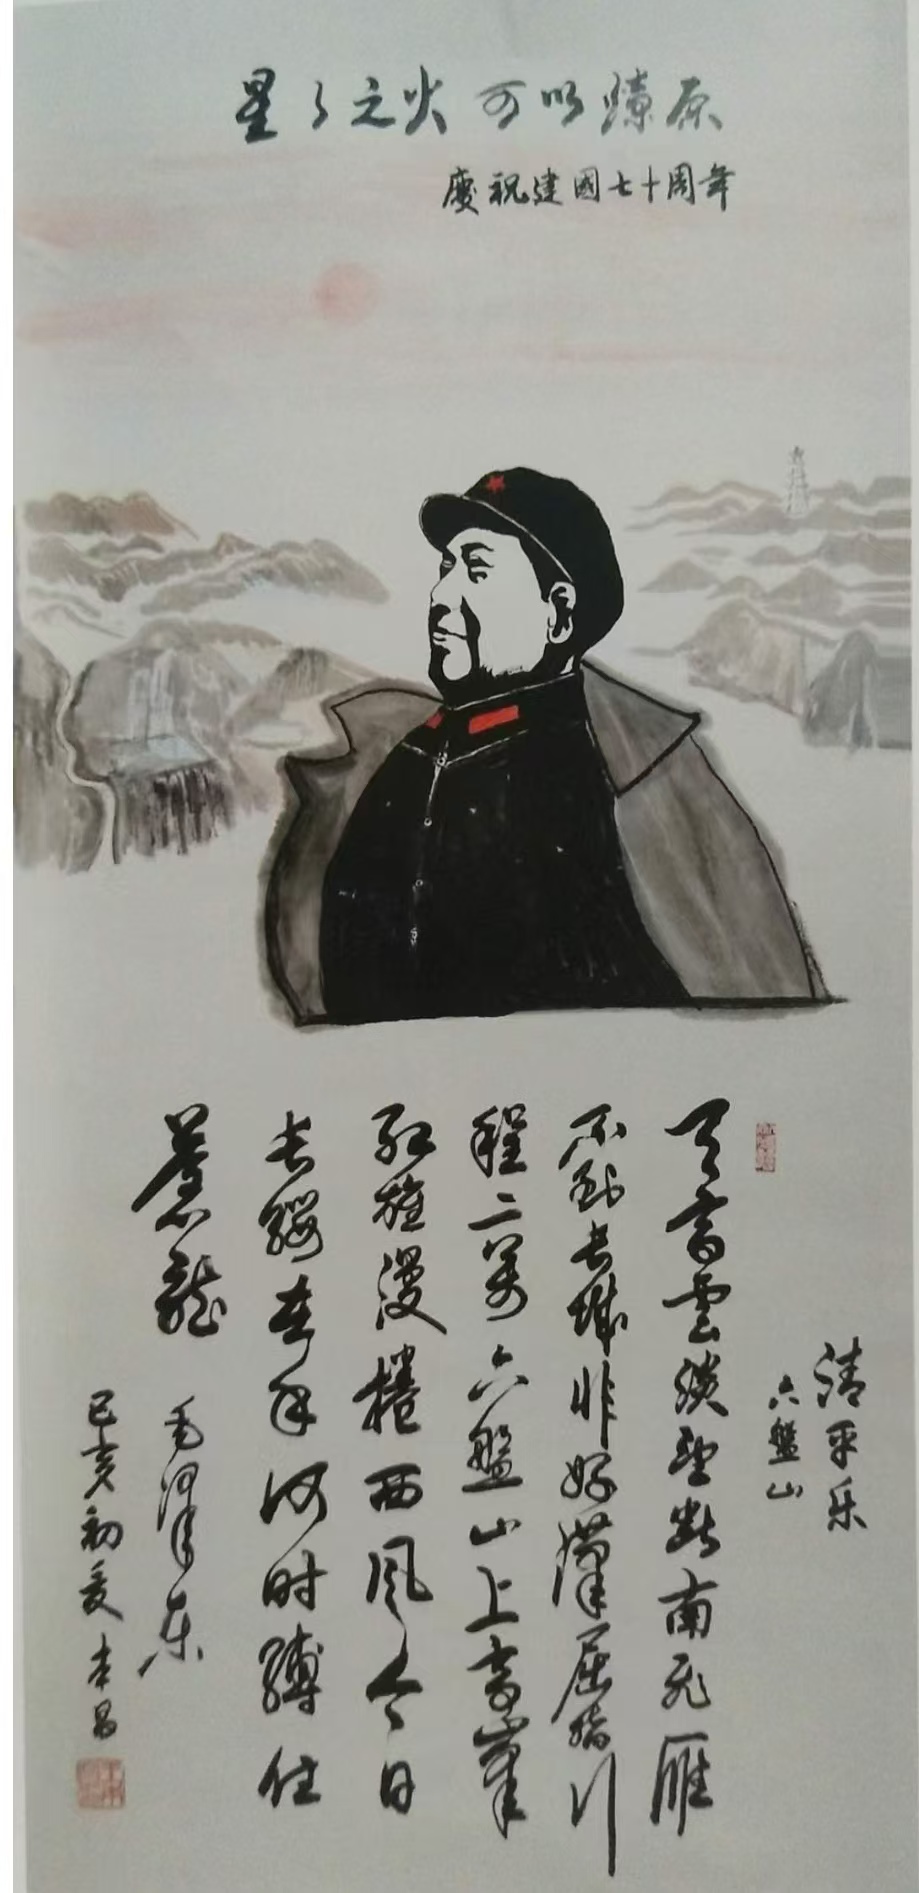 星星之火 可以燎原
慶祝建國七十周年
清平乐
六盤山
天高雲淡望断南飞雁
不到长城非好漢屈指行
程二萬六盤山上高峯
红旗漫捲西风今日
长缨在手何时缚住
蒼龍
毛泽东
己亥初夏 本昌